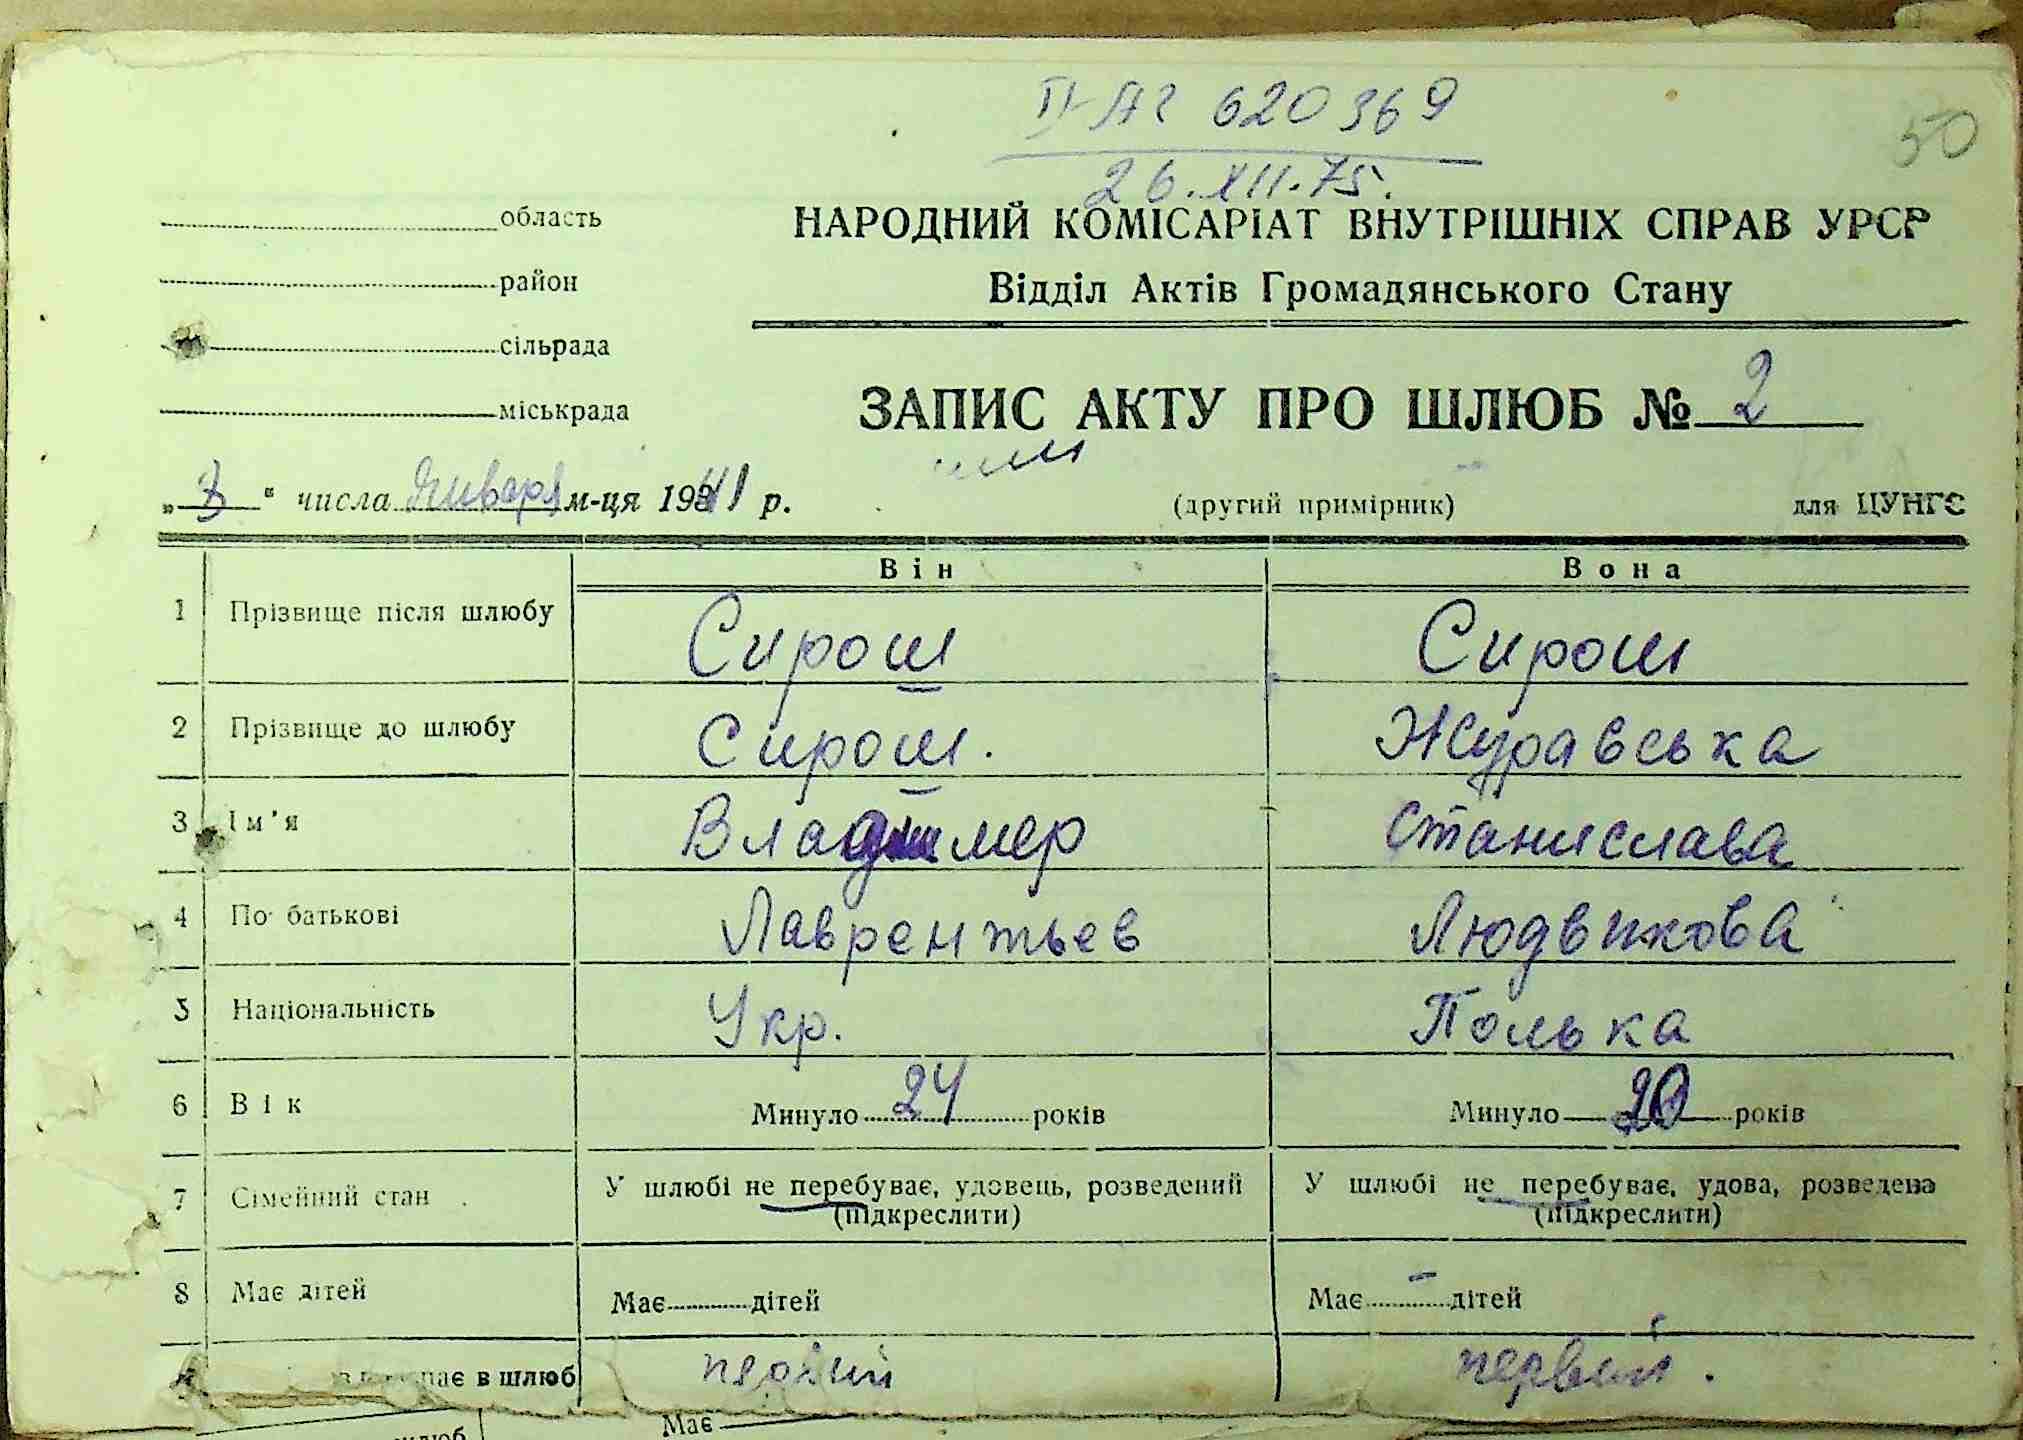 II-АГ 620369
50
26.XII.75.
область
НАРОДНИЙ КОМІСАРІАТ ВНУТРІШНІХ СПРАВ УРСР
район
Відділ Актів Громадянського Стану
сільрада
ЗАПИС АКТУ ПРО ШЛЮБ № 2
міськрада
„3“ числа Января м-ця 1941 р.
(другий примірник) для ЦУНГО
Він Вона
1 Прізвище після шлюбу Сирош Сирош
2 Прізвище до шлюбу Сирош. Журавська
3 Ім'я Владимер Станислава
4 По батькові Лаврентьев Людвикова
5 Національність Укр. Полька
6 Вік Минуло 24 років Минуло 20 років
7 Сімейний стан У шлюбі не перебуває, удовець, розведений У шлюбі не перебуває, удова, розведена
(підкреслити) (підкреслити)
8 Має дітей Має дітей Має - дітей
в шлюб первий первий.
Має